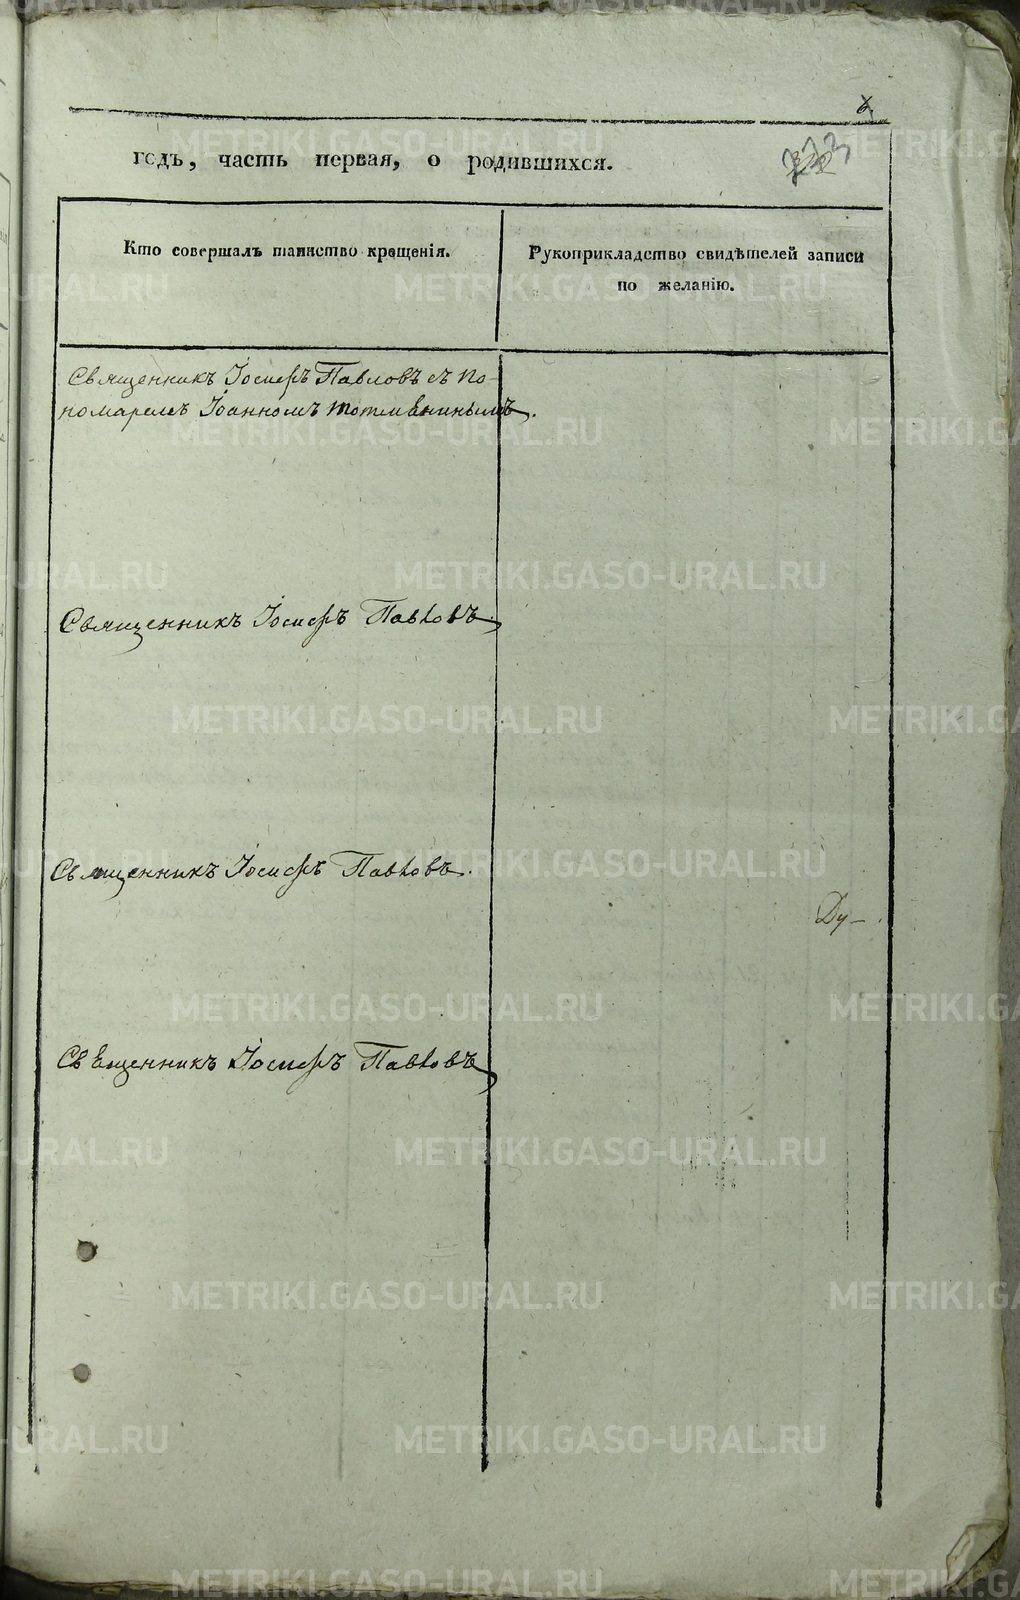 годъ, часть первая, о родившихся.
Кто совершалъ таинство крещенія.
Рукоприкладство свидѣтелей записи
по желанію.
Священникъ Іосифъ Павловъ съ по-
номаремъ Іоанномъ
Священникъ Іосифъ Павловъ
Священникъ Іосифъ Павловъ.
Ду-
Священникъ Іосифъ Павловъ
METRIKI.GASO-URAL.RU